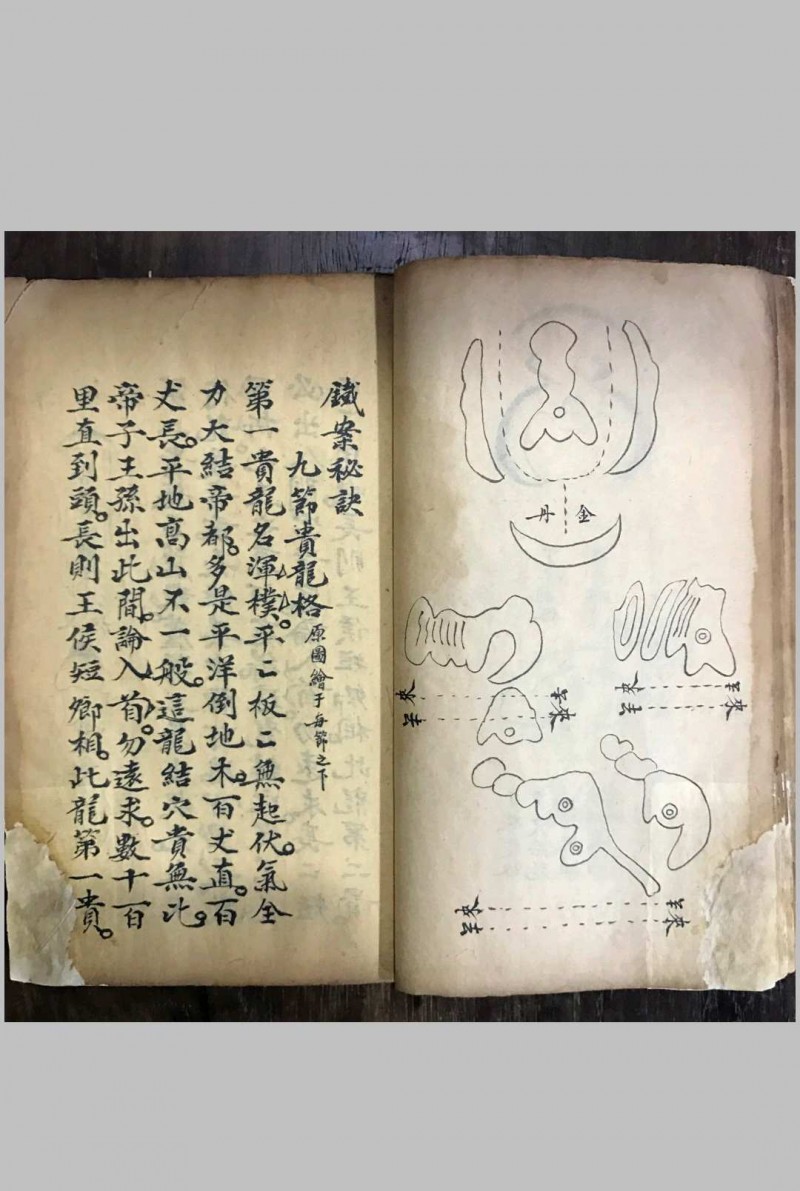 金丹
來
來
來
來
來
來
鐵案秘訣
九節貴龍格 原圖繪于每節之下
第一貴龍名渾樸。平〻板〻無起伏。氣全
力大結帝都。多是平洋倒地木。百丈直。百
丈長。平地高山不一般。這龍結穴貴無比。
帝子王孫出此間。論入首。勿遠求。數十百
里直到頭。長則王侯短卿相。此龍第一貴。